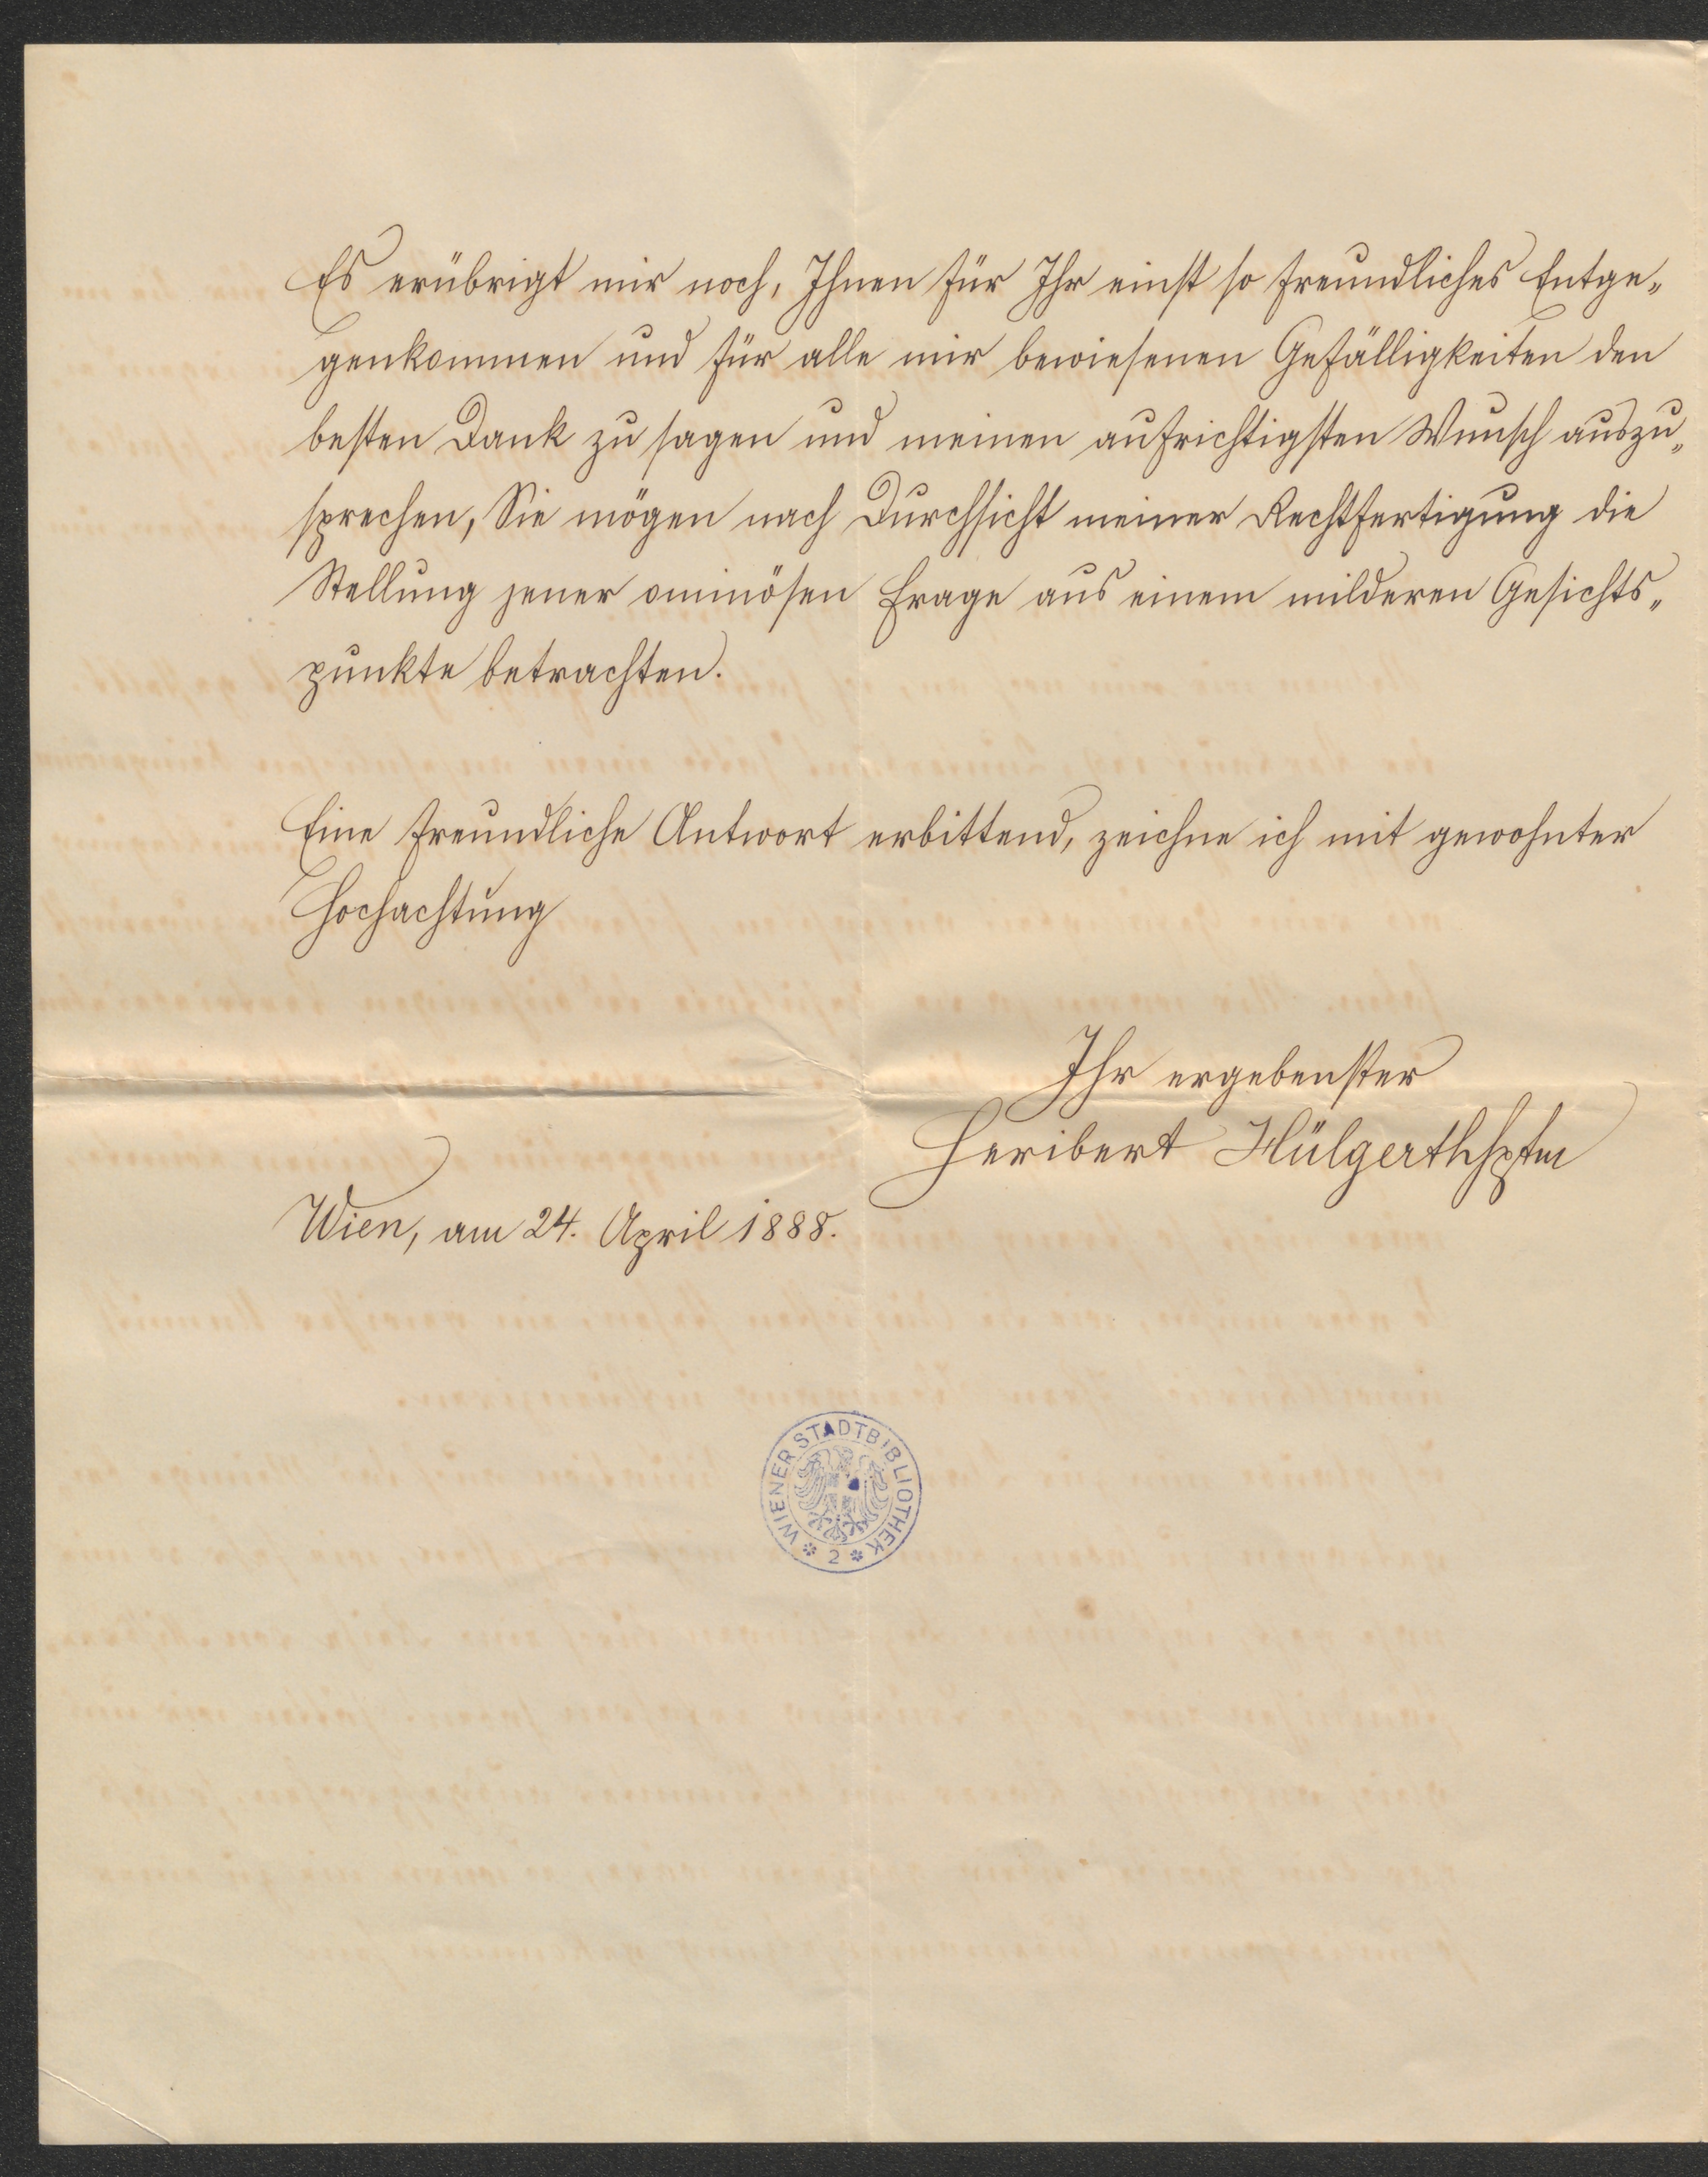 Es erübrigt mir noch, Ihnen für Ihr einst so freundliches Entge„
genkommen und für alle mir bewiesenen Gefälligkeiten den
besten Dank zu sagen und meinen aufrichtigsten Wunsch auszu„
sprechen, Sie mögen nach Durchsicht meiner Rechtfertigung die
Stellung jener ominösen Frage aus einem milderen Gesichts„
punkte betrachten.
Eine freundliche Antwort erbittend, zeichne ich mit gewohnter
Hochachtung
Ihr ergebenster
Heribert Hülgerth Hptm
Wien, am 24. April 1888.
WIENER STADTBIBLIOTHEK
* 2 *